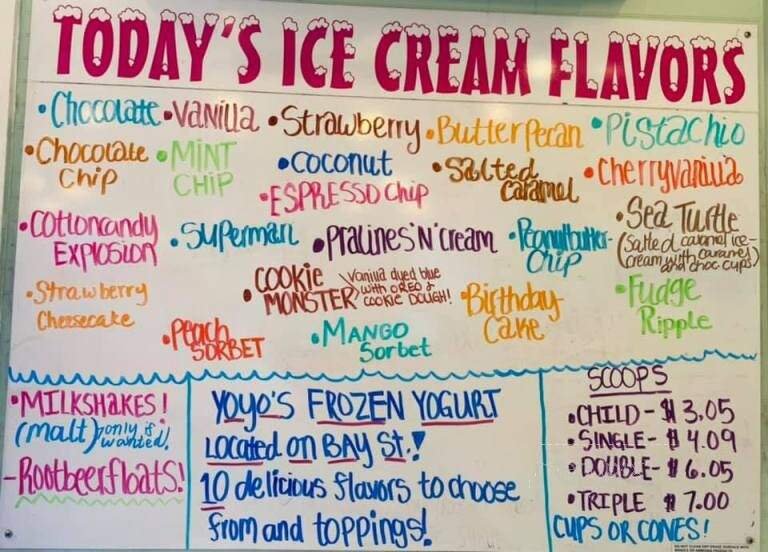 TODAY'S ICE CREAM FLAVORS
•Chocolate •Vanilla •Strawberry •Butter Pecan •Pistachio
•Chocolate Chip
•MINT CHIP
•COCONUT
•Salted Caramel
•Cherry Vanilla
•ESPRESSO Chip
•Cottoncandy EXPLOSION
•Superman
•PRALINES 'N' Cream
•Peanutbutter-Chip
•Sea Turtle
(salted caramel ice-
cream with caramel
and choc cups)
•Strawberry
Cheesecake
•COOKIE
MONSTER
Vanilla dyed blue
with OREO &
COOKIE DOUGH!
•Birthday
Cake
•Fudge
Ripple
•Peach
SORBET
•MANGO
Sorbet
•MILKSHAKES!
(malt) only if
wanted!
-Rootbeerfloats!
YOYO'S FROZEN YOGURT
LOCATED ON BAY St.!
10 delicious flavors to choose
from and toppings!
SCOOPS
•CHILD - $3.05
•SINGLE - $4.09
•DOUBLE - $6.05
•TRIPLE $7.00
CUPS OR CONES!